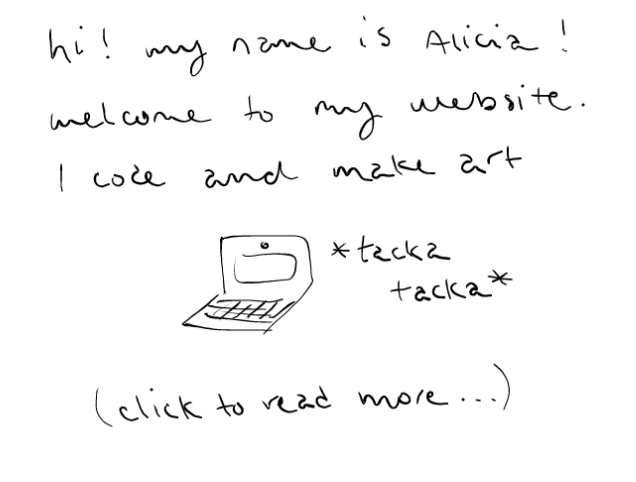 hi! my name is Alicia!
welcome to my website.
I code and make art
*tacka
tacka*
(click to read more...)